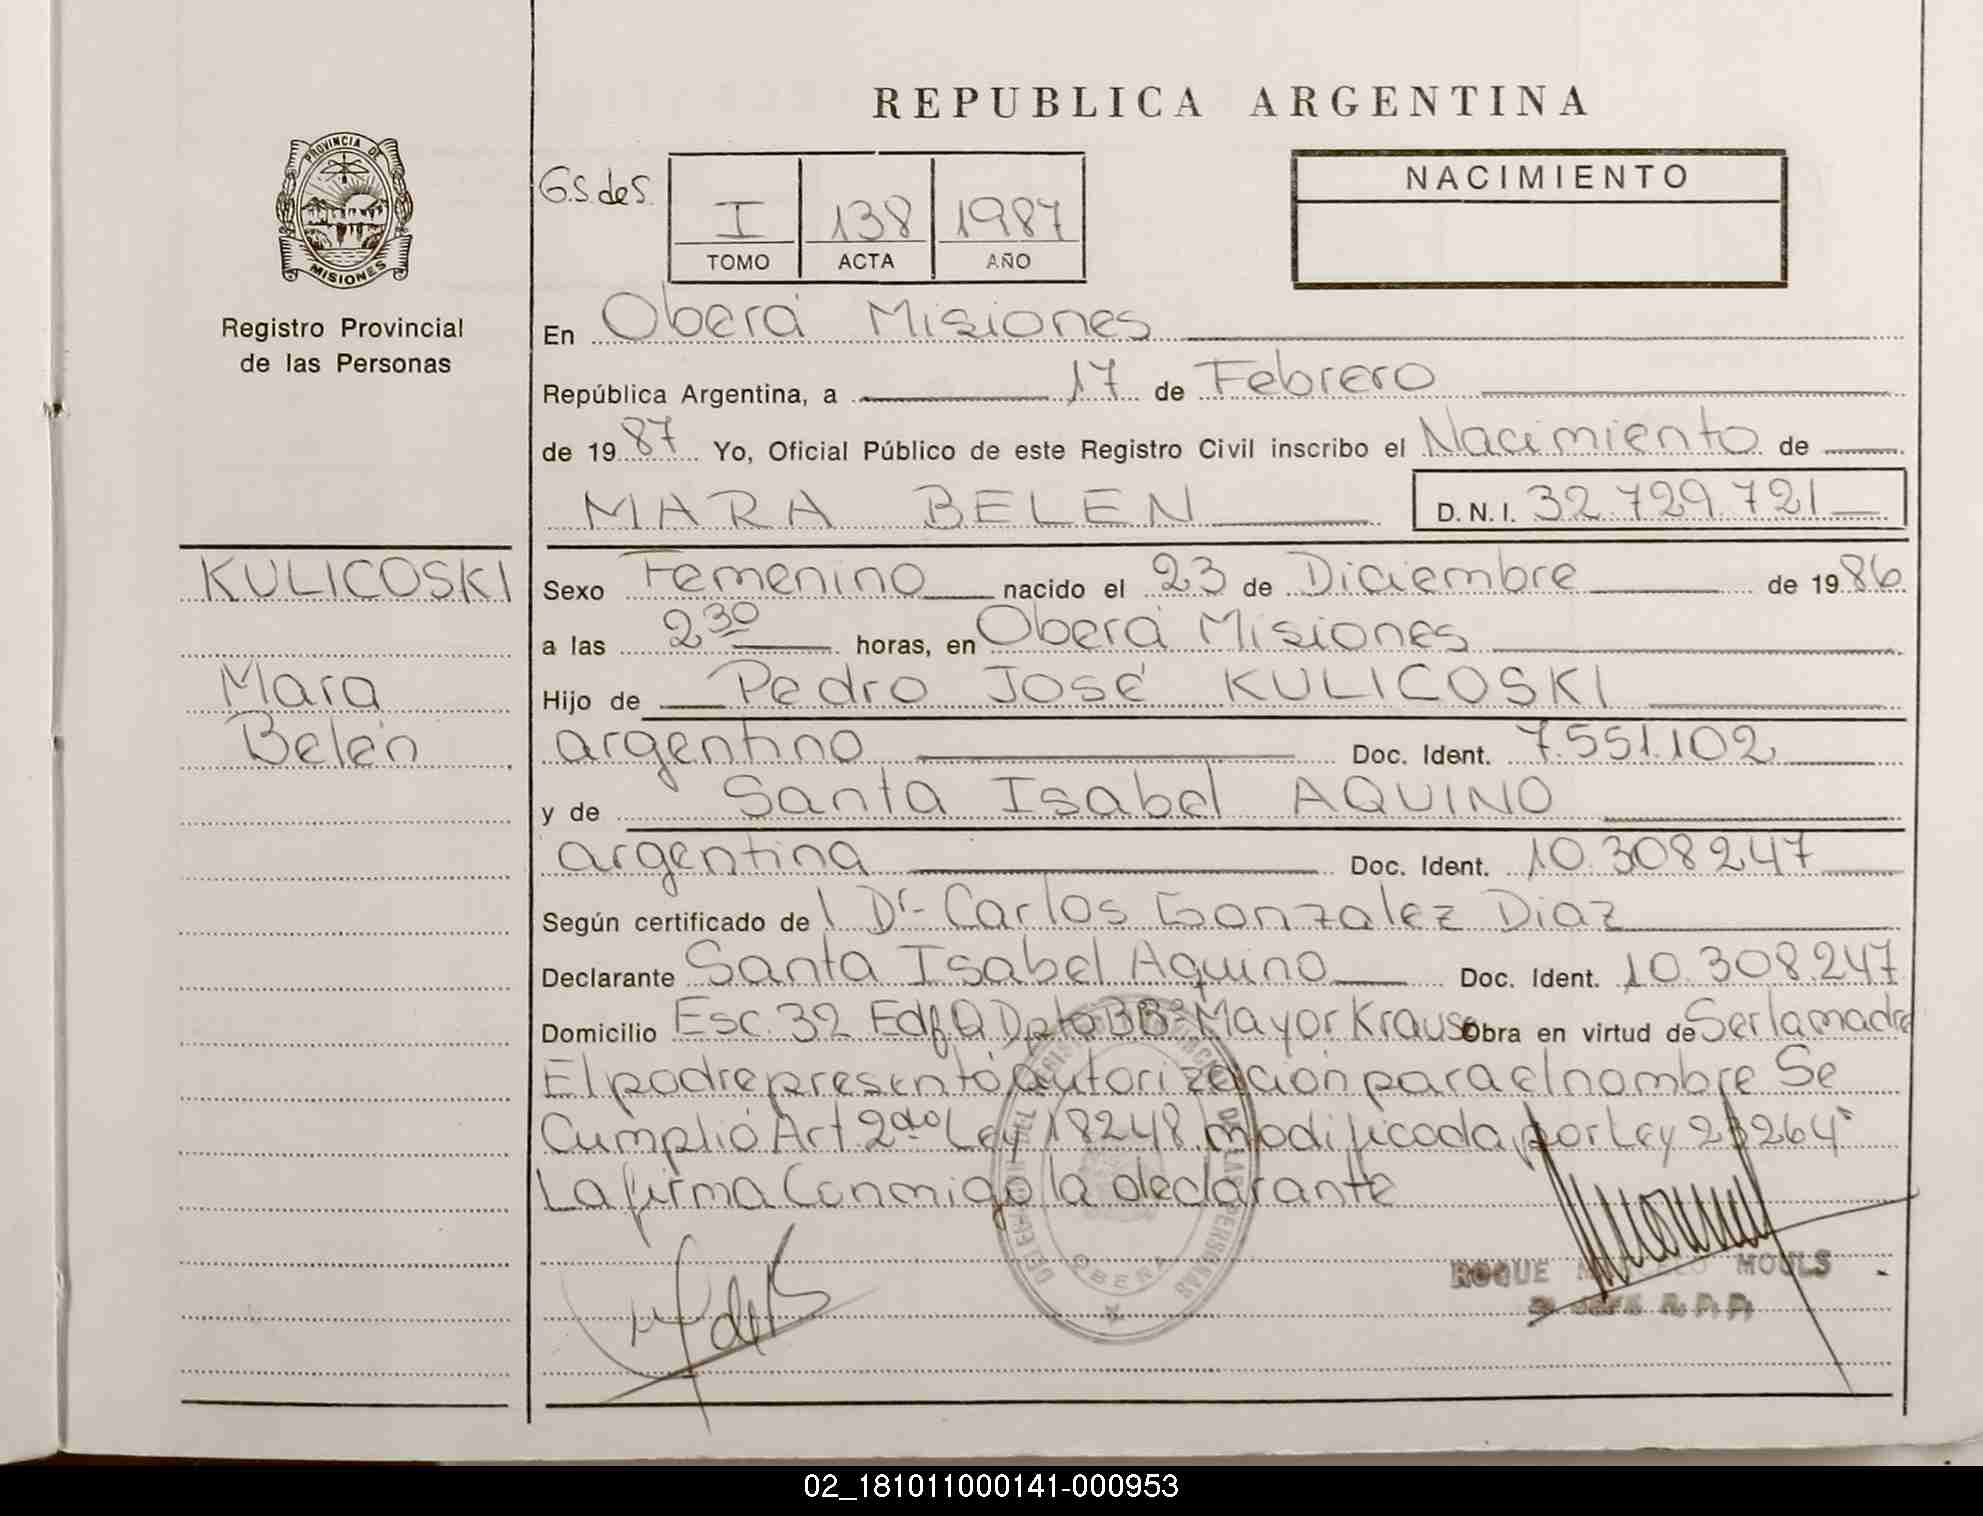 REPUBLICA ARGENTINA
PROVINCIA DE MISIONES
Registro Provincial
de las Personas
G.S. de S.
I 138 1987
TOMO ACTA AÑO
NACIMIENTO
En Oberá Misiones
República Argentina, a 17 de Febrero
de 1987 Yo, Oficial Público de este Registro Civil inscribo el Nacimiento de
MARA BELEN D.N.I. 32.729.721
KULICOSKI
Mara
Belén
Sexo Femenino nacido el 23 de Diciembre de 1986
a las 2 30 horas, en Oberá Misiones
Hijo de Pedro José KULICOSKI
argentino Doc. Ident. 7.551.102
y de Santa Isabel AQUINO
argentina Doc. Ident. 10.308247
Según certificado de l Dr. Carlos Gonzalez Diaz
Declarante Santa Isabel Aquino Doc. Ident. 10.308.247
Domicilio Esc. 32 Edf. Q Dpto B Bº Mayor Krause Obra en virtud de Ser la madre
El padre presentó autorización para el nombre Se
Cumplió Art. 2do Ley 18248 modificada por Ley 23264
La firma Conmigo la declarante
DEL REGISTRO DE LAS PERSONAS
OBERA
ROQUE MOULS
R. P. P.
02_181011000141-000953